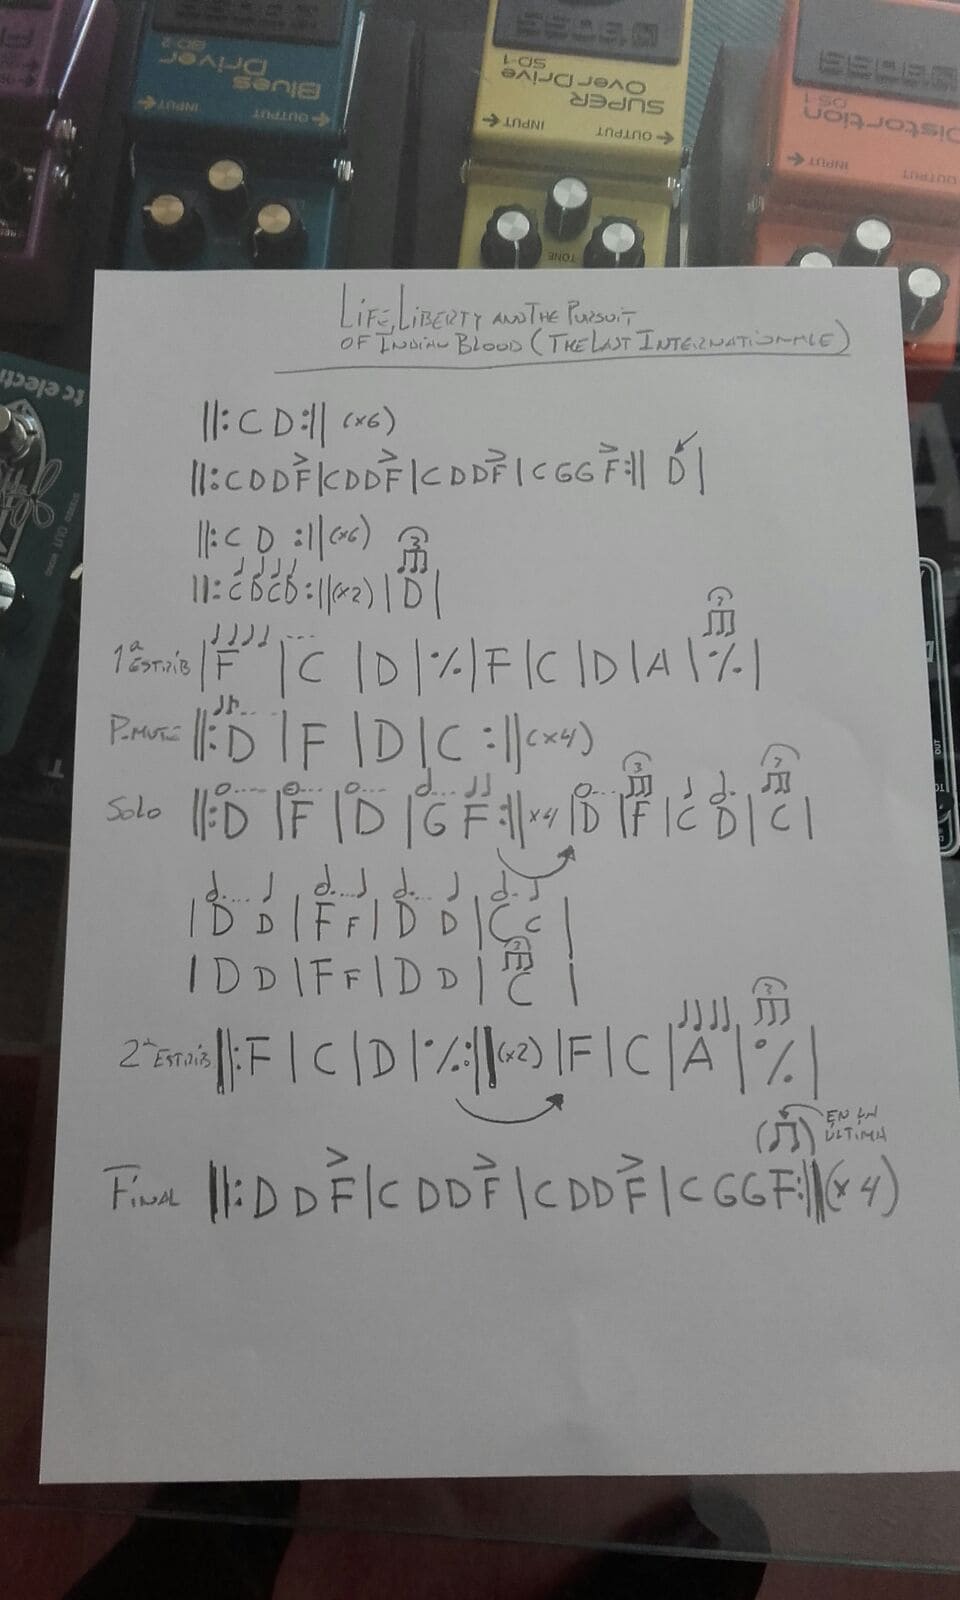 Blues Driver
BD-2
OUTPUT
INPUT
SUPER
OverDrive
SD-1
OUTPUT
INPUT
TONE
Distortion
DS-1
OUTPUT
INPUT
tc electroni
LIFE, LIBERTY AND THE PURSUIT
OF INDIAN BLOOD (THE LAST INTERNATIONALE)
||: C D :|| (x6)
||: C D D F | C D D F | C D D F | C G G F :|| D |
||: C D :|| (x6)
||: C D C D :|| (x2) | D |
1ª ESTRIB | F | C | D | % | F | C | D | A | % |
P.MUTE ||: D | F | D | C :|| (x4)
SOLO ||: D | F | D | G F :|| x4 | D | F | C D | C |
| D D | F F | D D | C C |
| D D | F F | D D | C |
2º ESTRIB ||: F | C | D | % :|| (x2) | F | C | A | % |
EN LA
ÚLTIMA
FINAL ||: D D F | C D D F | C D D F | C G G F :|| (x4)